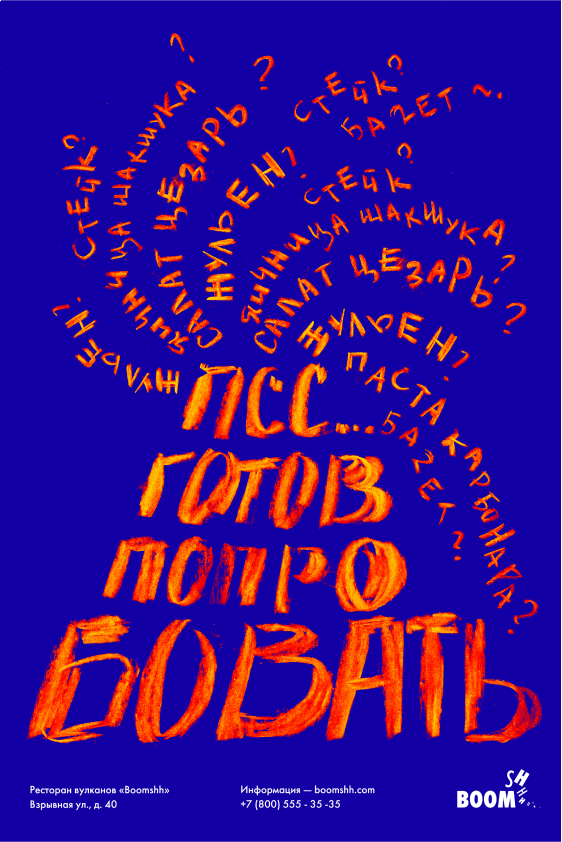 СТЕЙК?
ЯИЧНИЦА ШАКШУКА?
САЛАТ ЦЕЗАРЬ?
ЖУЛЬЕН?
ЖУЛЬЕН?
СТЕЙК?
БАГЕТ?
СТЕЙК?
ЯИЧНИЦА ШАКШУКА?
САЛАТ ЦЕЗАРЬ?
ЖУЛЬЕН?
ПАСТА КАРБОНАРА?
БАГЕТ?
ПСС...
ГОТОВ
ПОПРО
БОВАТЬ
Ресторан вулканов «Boomshh»
Взрывная ул., д. 40
Информация — boomshh.com
+7 (800) 555 - 35 -35
BOOMSHHHH